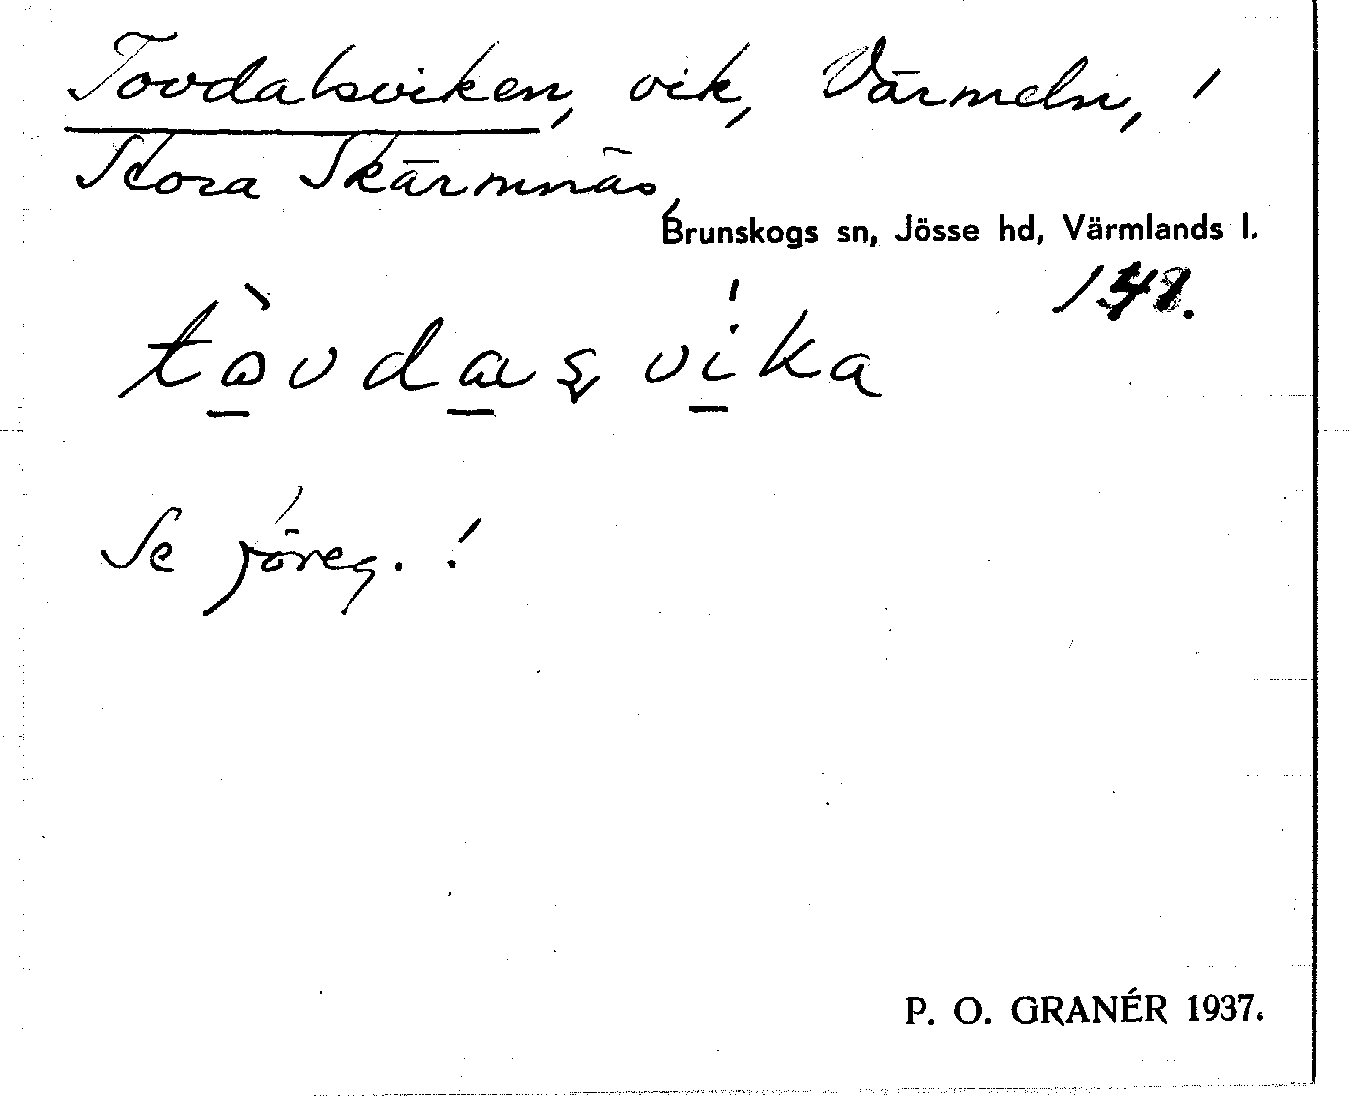 Tovdalsviken, vik, Värmeln, !
Stora Skärmnäs,
Brunskogs sn, Jösse hd, Värmlands l.
tòvdaʂvika
Se föreg. !
P. O. GRANÉR 1937.